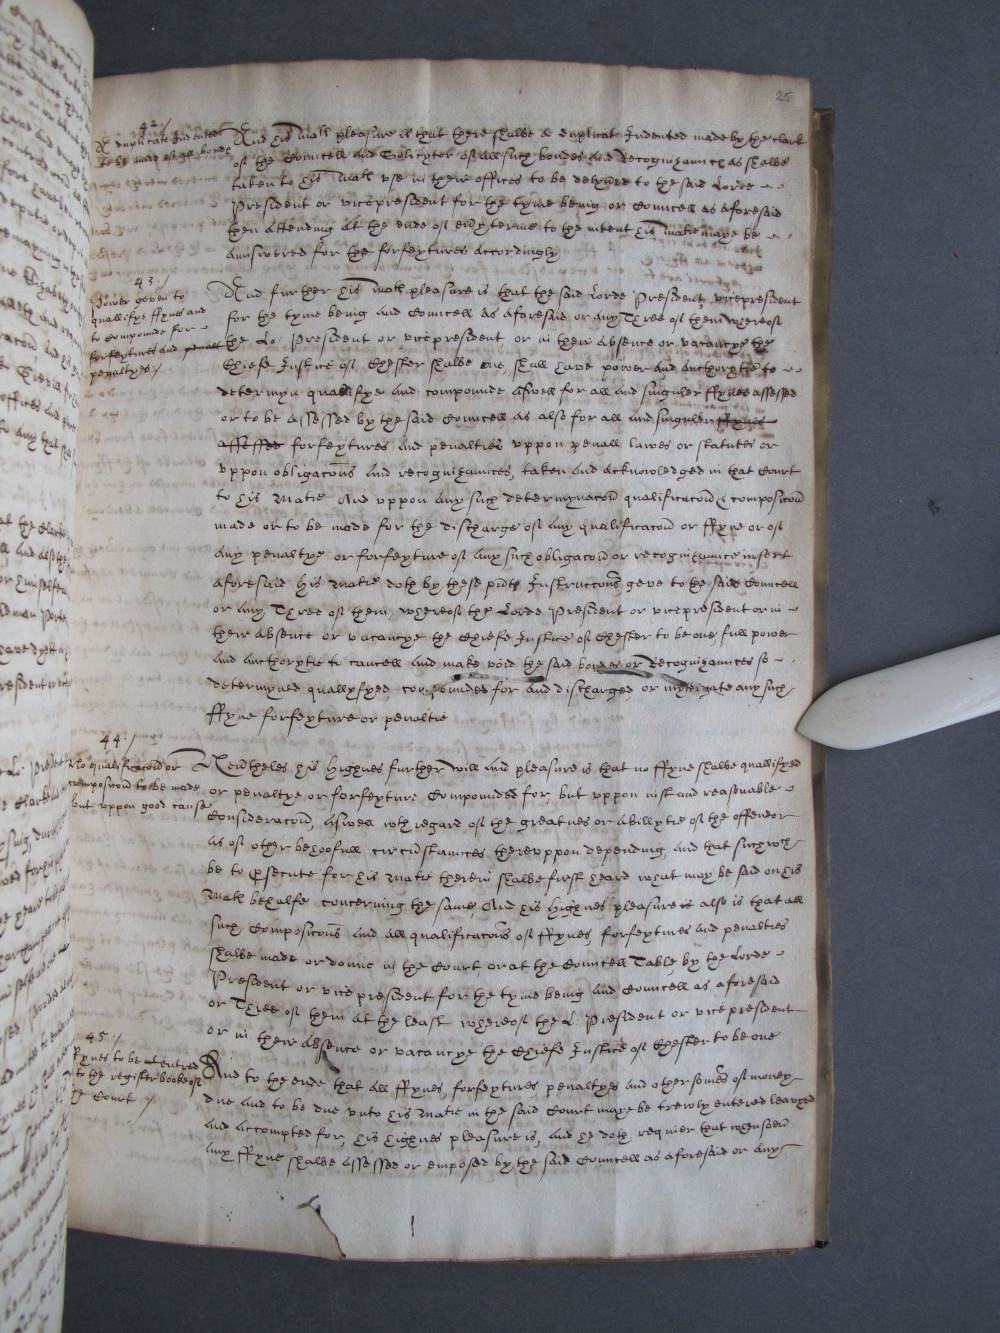 25
42./
A duplicate Indented
to be made of all bondes
And his Ma:ts pleasure is that there shalbe a duplicat Indented made by the clark
of the Councell and Solicytor of all such bondes and Recognizaunces as shalbe
taken to his Ma:ts vse in their offices to be deliuered to the said Lorde
President or vicepresident for the tyme being or Councell as aforesaid
then attending at the ende of euery terme to the intent his Ma:tie maye be
aunswered for the forfeytures accordingly
43./
Power geven to
quallifye ffynes and
to compounde for
forfeytures and penall
penaltyes /
And further his Ma:ts pleasure is that the said Lorde President, vicepresident
for the tyme being and Councell as aforesaid or any Three of them whereof
the Lo: President or vicepresident, or in their absence or vacancye the
Chiefe Justice of Chester shalbe one, shall have power and authorytie to
determyn quallifye and compounde aswell for all and singuler ffynes assessed
or to be assessed by the said Councell as also for all and singuler ffynes
assessed forfeytures and penalties vppon penall lawes or statutes or
vppon obligacons and recognizaunces, taken and acknowledged in that Court
to his Matie And vppon any such determynacon qualificacon & composicon
made or to be made for the discharge of any qualificacon or ffyne or of
any penaltye or forfeyture of any such obligacon or recognizaunce in sort
aforesaid his Matie doth by these pnts Instruccons geve to the said Councell
or any Three of them, whereof the Lorde President or vicepresident or in
their absence or vacancye the Chiefe Justice of Chester to be one, full power
and authorytie to cancell and make void the said bondes or Recognizaunces so
determyned quallyfyed, compounded for and discharged or mytigate any such
ffyne forfeyture or penaltie
44:/
No qualificacon or
composicon to be made
but vppon good cause
Neutheles his highnes further will and pleasure is that no ffyne shalbe quallifyed
or penaltye or forfeyture Compounded for, but vppon iust and reasonable
Consideracon, aswell wth regard of the greatnes or abillytie of the offendor
as of other behoofull circumstaunces therevppon depending, and that such wch
be to psecute for his Matie therein shalbe first heard what may be said on his
Ma:ts behalfe concerning the same, And his highnes pleasure is also is that all
such Composicons and all qualificacons of ffynes forfeytures and penalties
shalbe made or donne in the Court or at the Councell Table by the Lorde
President or vice president for the tyme being and Councell as aforesaid
or Three of them at the least whereof the L: President or vice president
or in their absence or vacancye the Chiefe Justice of Chester to be one
45 /
ffynes to be entred
to the register booke of
the Court /
And to the ende that all ffynes, forfeytures, penaltyes and other somes of money
due and to be due vnto his Matie in the said Court maye be trewly entered leavyed
and accompted for, his highnes pleasure is, and he doth requier that whensoeuer
any ffyne shalbe assessed or emposed by the said Councell as aforesaid or any